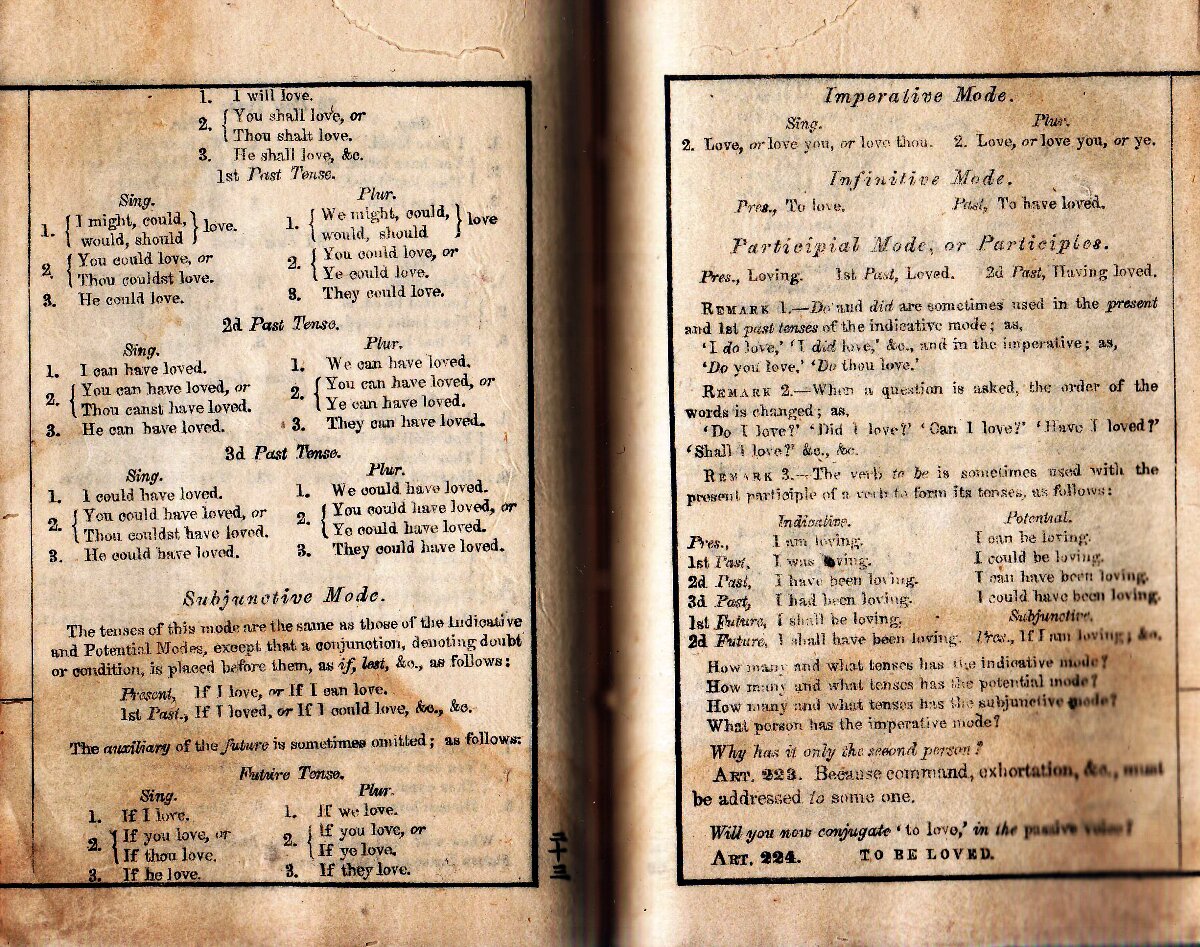 1. I will love.
2. { You shall love, or
Thou shalt love.
3. He shall love, &c.
1st Past Tense.
Sing. Plur.
1. { I might, could, would, should } love. 1. { We might, could, would, should } love
2. { You could love, or 2. { You could love, or
Thou couldst love. Ye could love.
3. He could love. 3. They could love.
2d Past Tense.
Sing. Plur.
1. I can have loved. 1. We can have loved.
2. { You can have loved, or 2. { You can have loved, or
Thou canst have loved. Ye can have loved.
3. He can have loved. 3. They can have loved.
3d Past Tense.
Sing. Plur.
1. I could have loved. 1. We could have loved.
2. { You could have loved, or 2. { You could have loved, or
Thou couldst have loved. Ye could have loved.
3. He could have loved. 3. They could have loved.
Subjunctive Mode.
The tenses of this mode are the same as those of the Indicative
and Potential Modes, except that a conjunction, denoting doubt
or condition, is placed before them, as if, lest, &c., as follows:
Present, If I love, or If I can love.
1st Past., If I loved, or If I could love, &c., &c.
The auxiliary of the future is sometimes omitted; as follows:
Future Tense.
Sing. Plur.
1. If I love. 1. If we love.
2. { If you love, or 2. { If you love, or
If thou love. If ye love.
3. If he love. 3. If they love.
二十三
Imperative Mode.
Sing. Plur.
2. Love, or love you, or love thou. 2. Love, or love you, or ye.
Infinitive Mode.
Pres., To love. Past, To have loved.
Participial Mode, or Participles.
Pres., Loving. 1st Past, Loved. 2d Past, Having loved.
REMARK 1.—Do and did are sometimes used in the present
and 1st past tenses of the indicative mode; as,
'I do love,' 'I did love,' &c., and in the imperative; as,
'Do you love.' 'Do thou love.'
REMARK 2.—When a question is asked, the order of the
words is changed; as,
'Do I love?' 'Did I love?' 'Can I love?' 'Have I loved?'
'Shall I love?' &c., &c.
REMARK 3.—The verb to be is sometimes used with the
present participle of a verb to form its tenses, as follows:
Indicative. Potential.
Pres., I am loving. I can be loving.
1st Past, I was loving. I could be loving.
2d Past, I have been loving. I can have been loving.
3d Past, I had been loving. I could have been loving.
1st Future, I shall be loving. Subjunctive.
2d Future, I shall have been loving. Pres., If I am loving; &c.
How many and what tenses has the indicative mode?
How many and what tenses has the potential mode?
How many and what tenses has the subjunctive mode?
What person has the imperative mode?
Why has it only the second person?
ART. 223. Because command, exhortation, &c., must
be addressed to some one.
Will you now conjugate 'to love,' in the passive voice?
ART. 224. TO BE LOVED.